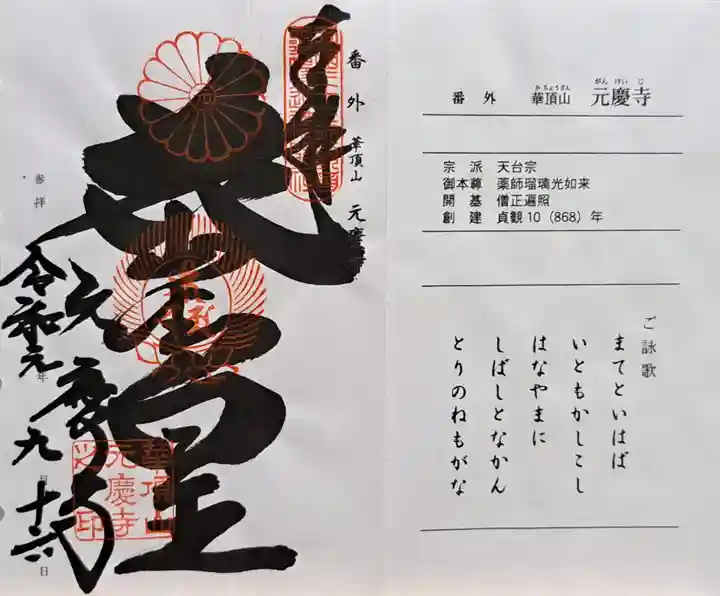 番外 華頂山 元慶寺
かちょうざん
がんけいじ
宗派 天台宗
御本尊 薬師瑠璃光如来
開基 僧正遍照
創建 貞観10(868)年
ご詠歌
まてといはば
いともかしこし
はなやまに
しばしとなかん
とりのねもがな
奉拝
番外 華頂山 元慶
参拝
元慶寺
令和元年九月十六日
華頂山
元慶寺
之印